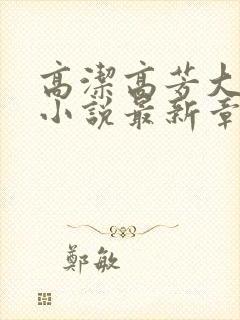 高潔高芳大
小說最新章
鄭敏